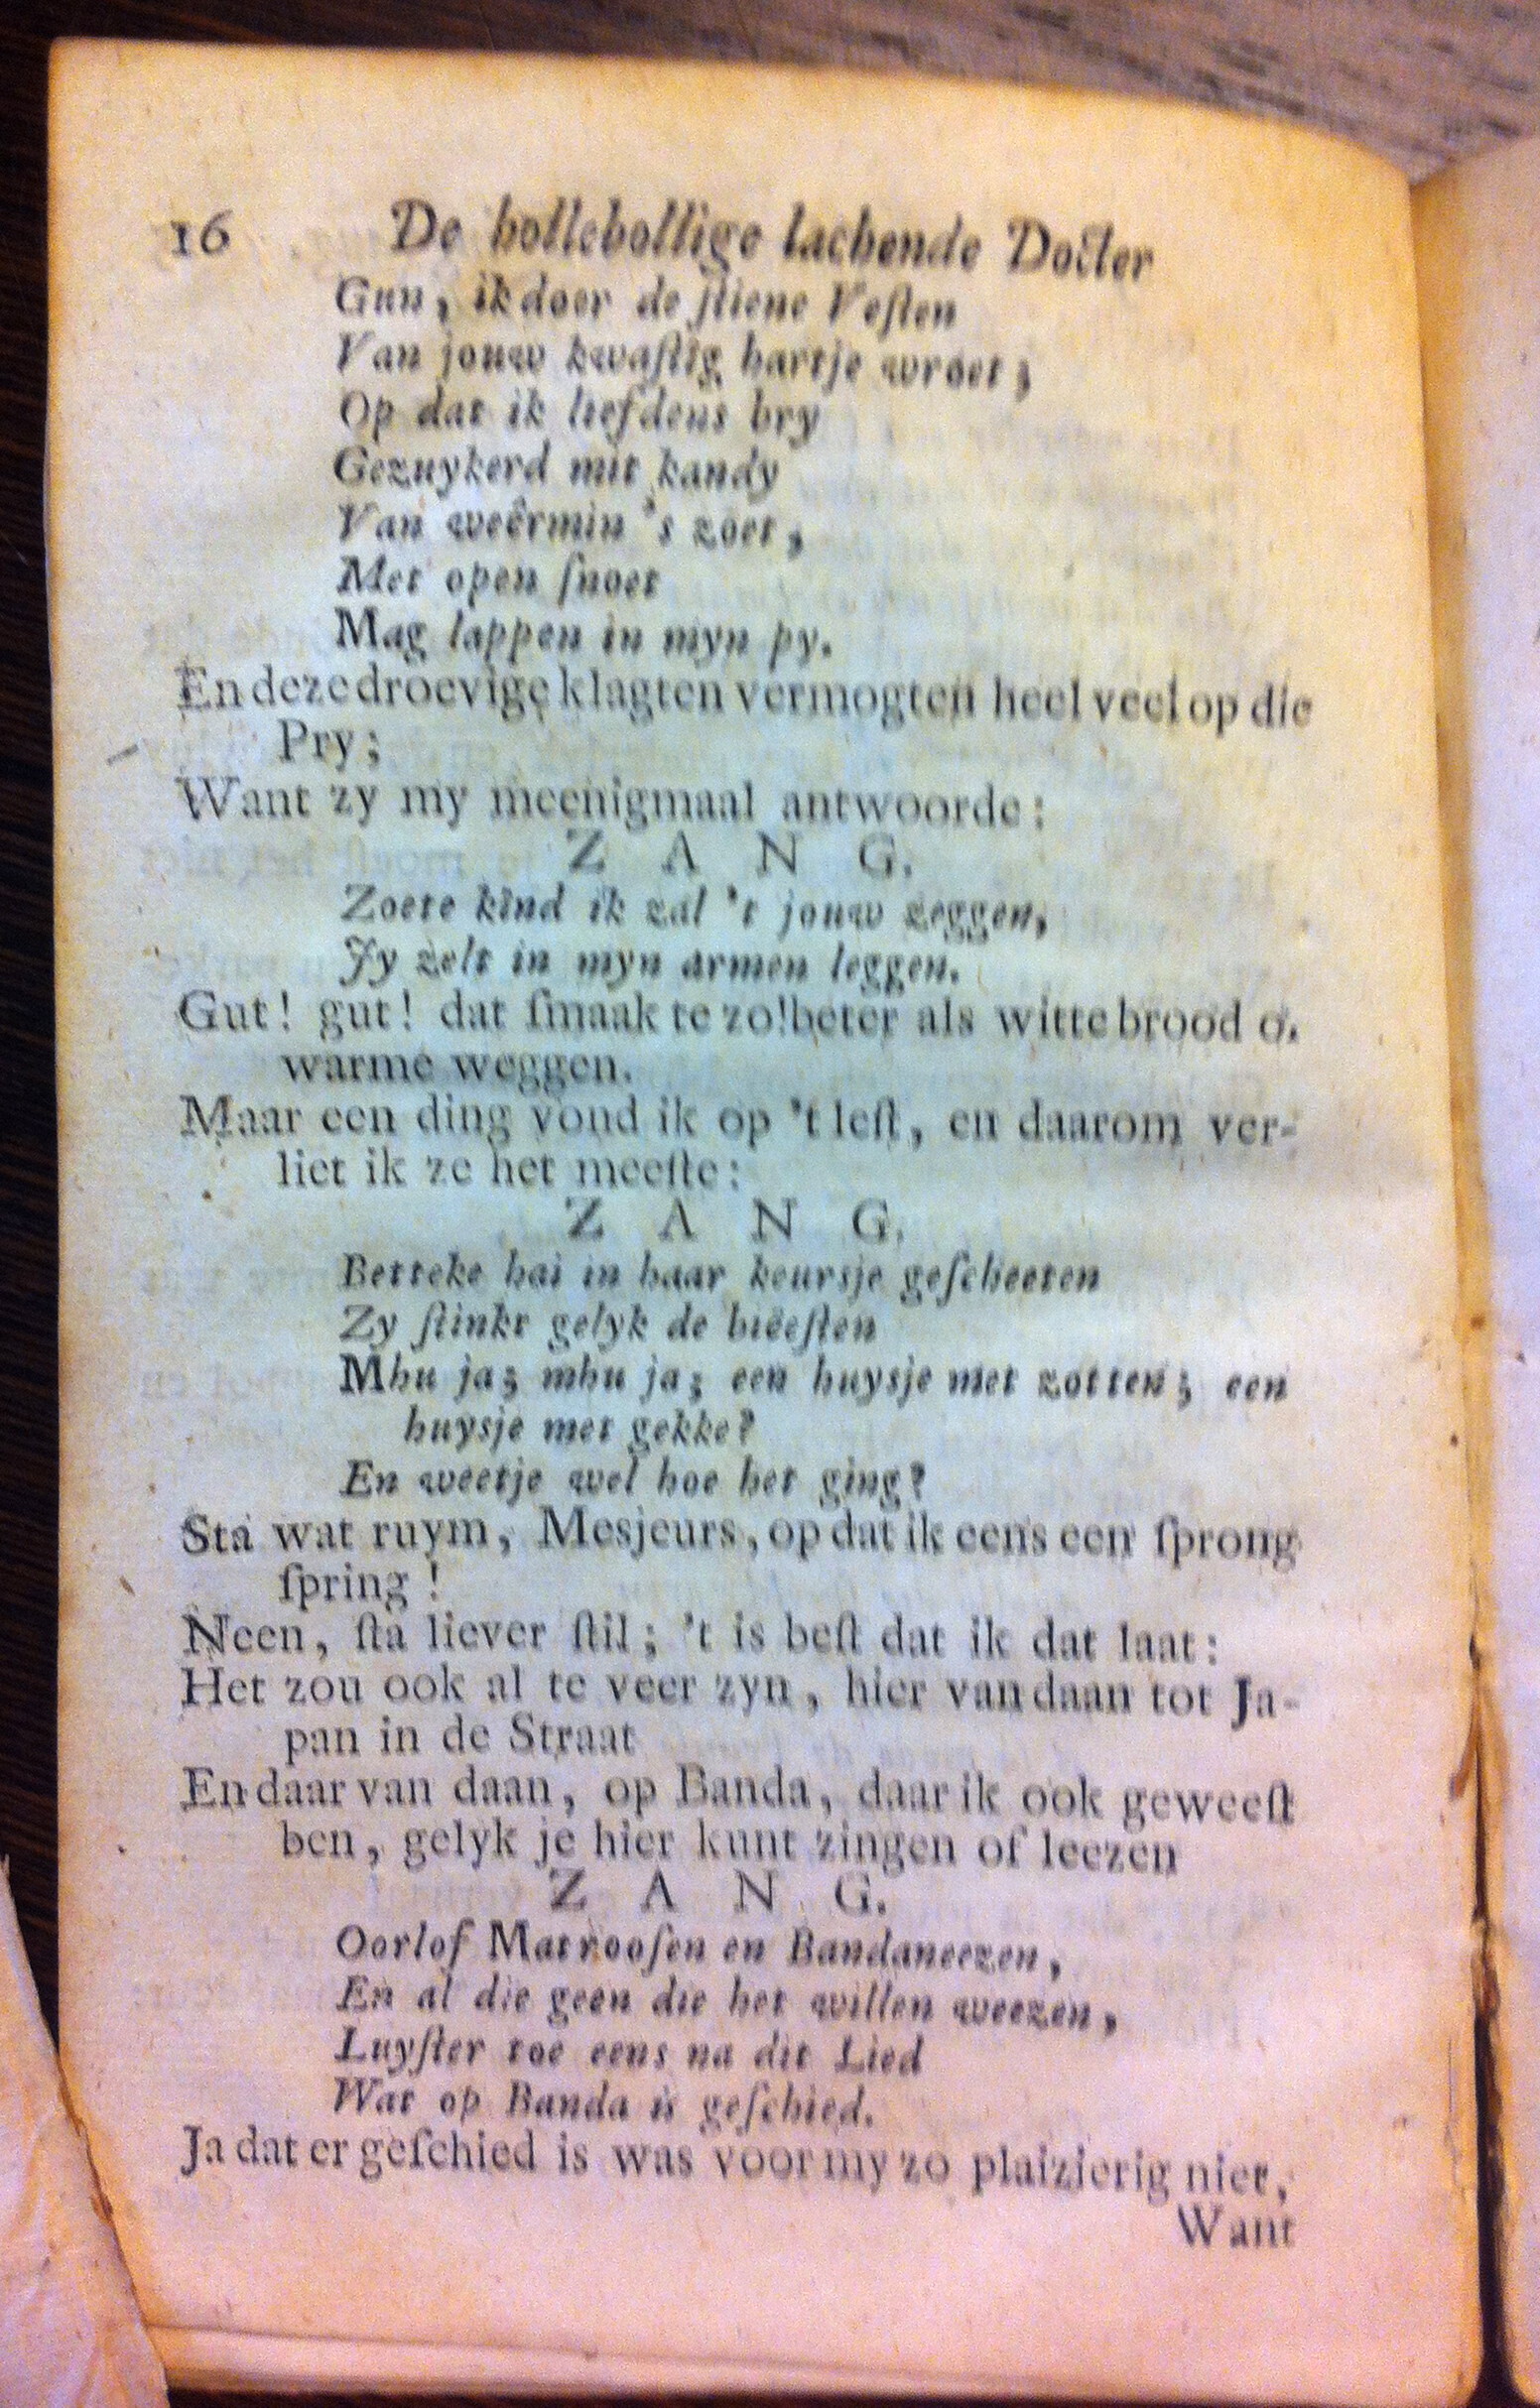 16 De hollebollige lachende Docter
Gun, ik doer de ſtiene Veſten
Van jouw kwaſtig hartje wroet;
Op dat ik liefdens bry
Gezuykerd mit kandy
Van weêrmin 's zoet,
Met open ſnoet
Mag lappen in myn py.
En deze droevige klagten vermogten heel veel op die
Pry;
Want zy my meenigmaal antwoorde:
Z A N G.
Zoete kind ik zal 't jouw zeggen,
Jy zelt in myn armen leggen.
Gut! gut! dat ſmaak te zo! beter als witte brood o.
warme weggen.
Maar een ding vond ik op 't leſt, en daarom ver-
liet ik ze het meeſte:
Z A N G.
Betteke hai in haar keursje geſcheeten
Zy ſtinkt gelyk de bieeſten
Mhu ja; mhu ja; een huysje met zotten; een
huysje met gekke?
En weetje wel hoe het ging?
Sta wat ruym, Mesjeurs, op dat ik eens een ſprong
ſpring!
Neen, ſta liever ſtil; 't is beſt dat ik dat laat:
Het zou ook al te veer zyn, hier van daan tot Ja-
pan in de Straat
En daar van daan, op Banda, daar ik ook geweeſt
ben, gelyk je hier kunt zingen of leezen
Z A N G.
Oorlof Matrooſen en Bandaneezen,
En al die geen die het willen weezen,
Luyſter toe eens na dit Lied
Wat op Banda is geſchied.
Ja dat er geſchied is was voor my zo plaizierig niet,
Want